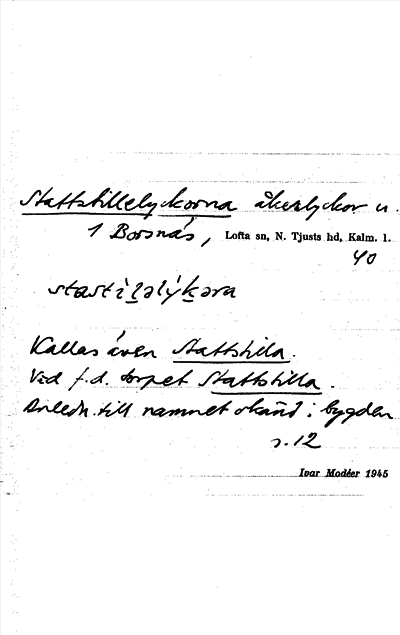 Stattstillelyckorna åkerlyckor u.
1 Bossnäs, Lofta sn, N. Tjusts hd, Kalm. l.
40
stastìḷəlýḳəra
Kallas även Stattstilla.
Ved f.d. torpet Stattstilla.
Anledn. till namnet okänd i bygden
s. 12
Ivar Modéer 1945